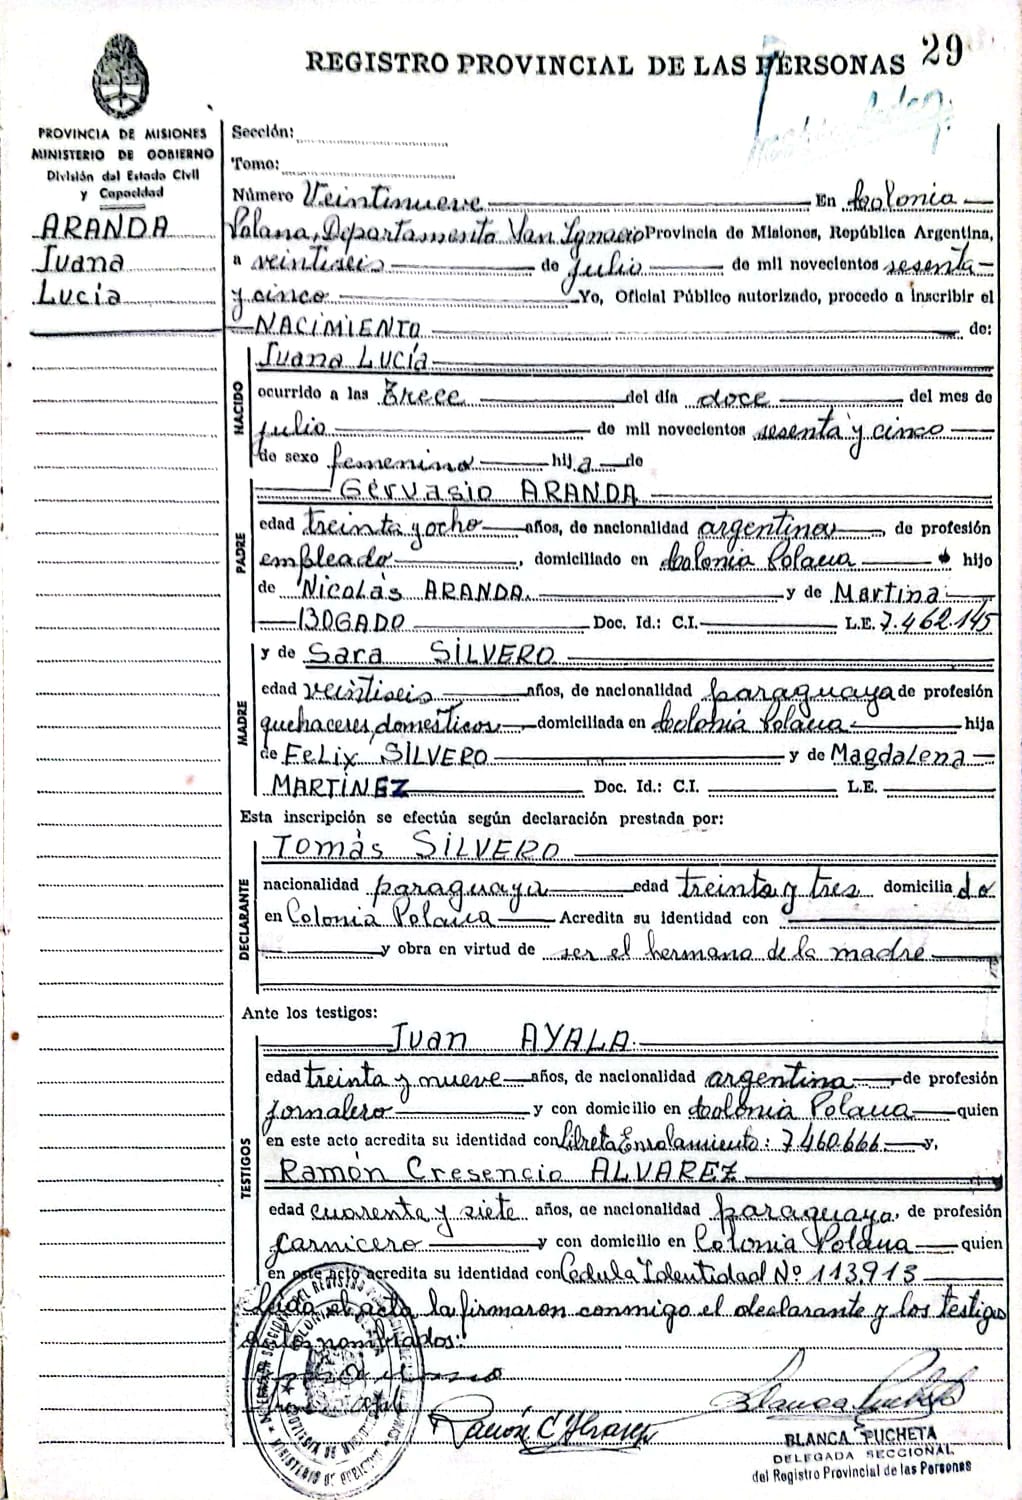 REGISTRO PROVINCIAL DE LAS PERSONAS 29
PROVINCIA DE MISIONES
MINISTERIO DE GOBIERNO
División del Estado Civil
y Capacidad
ARANDA
Juana
Lucía
Sección:
Tomo:
Número Veintinueve En Colonia
Polana, Departamento San Ignacio Provincia de Misiones, República Argentina,
a veintiseis de julio de mil novecientos sesenta
y cinco Yo, Oficial Público autorizado, procedo a inscribir el
NACIMIENTO de:
NACIDO
Juana Lucía
ocurrido a las trece del día doce del mes de
julio de mil novecientos sesenta y cinco
de sexo femenino hija de
PADRE
Gervasio ARANDA
edad treinta y ocho años, de nacionalidad argentina, de profesión
empleado, domiciliado en Colonia Polana hijo
de Nicolás ARANDA y de Martina
BOGADO Doc. Id.: C.I. L.E. 7.462.145
MADRE
y de Sara SILVERO
edad veintiseis años, de nacionalidad paraguaya de profesión
quehaceres domésticos domiciliada en Colonia Polana hija
de Felix SILVERO y de Magdalena
MARTINEZ Doc. Id.: C.I. L.E.
Esta inscripción se efectúa según declaración prestada por:
DECLARANTE
Tomás SILVERO
nacionalidad paraguaya edad treinta y tres domiciliado
en Colonia Polana Acredita su identidad con
y obra en virtud de ser el hermano de la madre
Ante los testigos:
TESTIGOS
Juan AYALA
edad treinta y nueve años, de nacionalidad argentina de profesión
jornalero y con domicilio en Colonia Polana quien
en este acto acredita su identidad con Libreta Enrolamiento: 7.460.666 y,
Ramón Cresencio ALVAREZ
edad cuarenta y siete años, de nacionalidad paraguaya, de profesión
carnicero y con domicilio en Colonia Polana quien
en este acto acredita su identidad con Cedula Identidad Nº 113.913
Leida el acta la firmaron conmigo el declarante y los testigos
nombrados:
Ramón C Alvarez
Blanca Pucheta
BLANCA PUCHETA
DELEGADA SECCIONAL
del Registro Provincial de las Personas